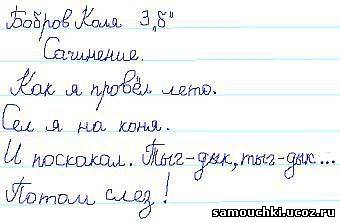 Бобров Коля 3 „б“
Сочинение.
Как я провёл лето.
Сел я на коня.
И поскакал. Тыг-дык, тыг-дык...
Потом слез!
samouchki.ucoz.ru